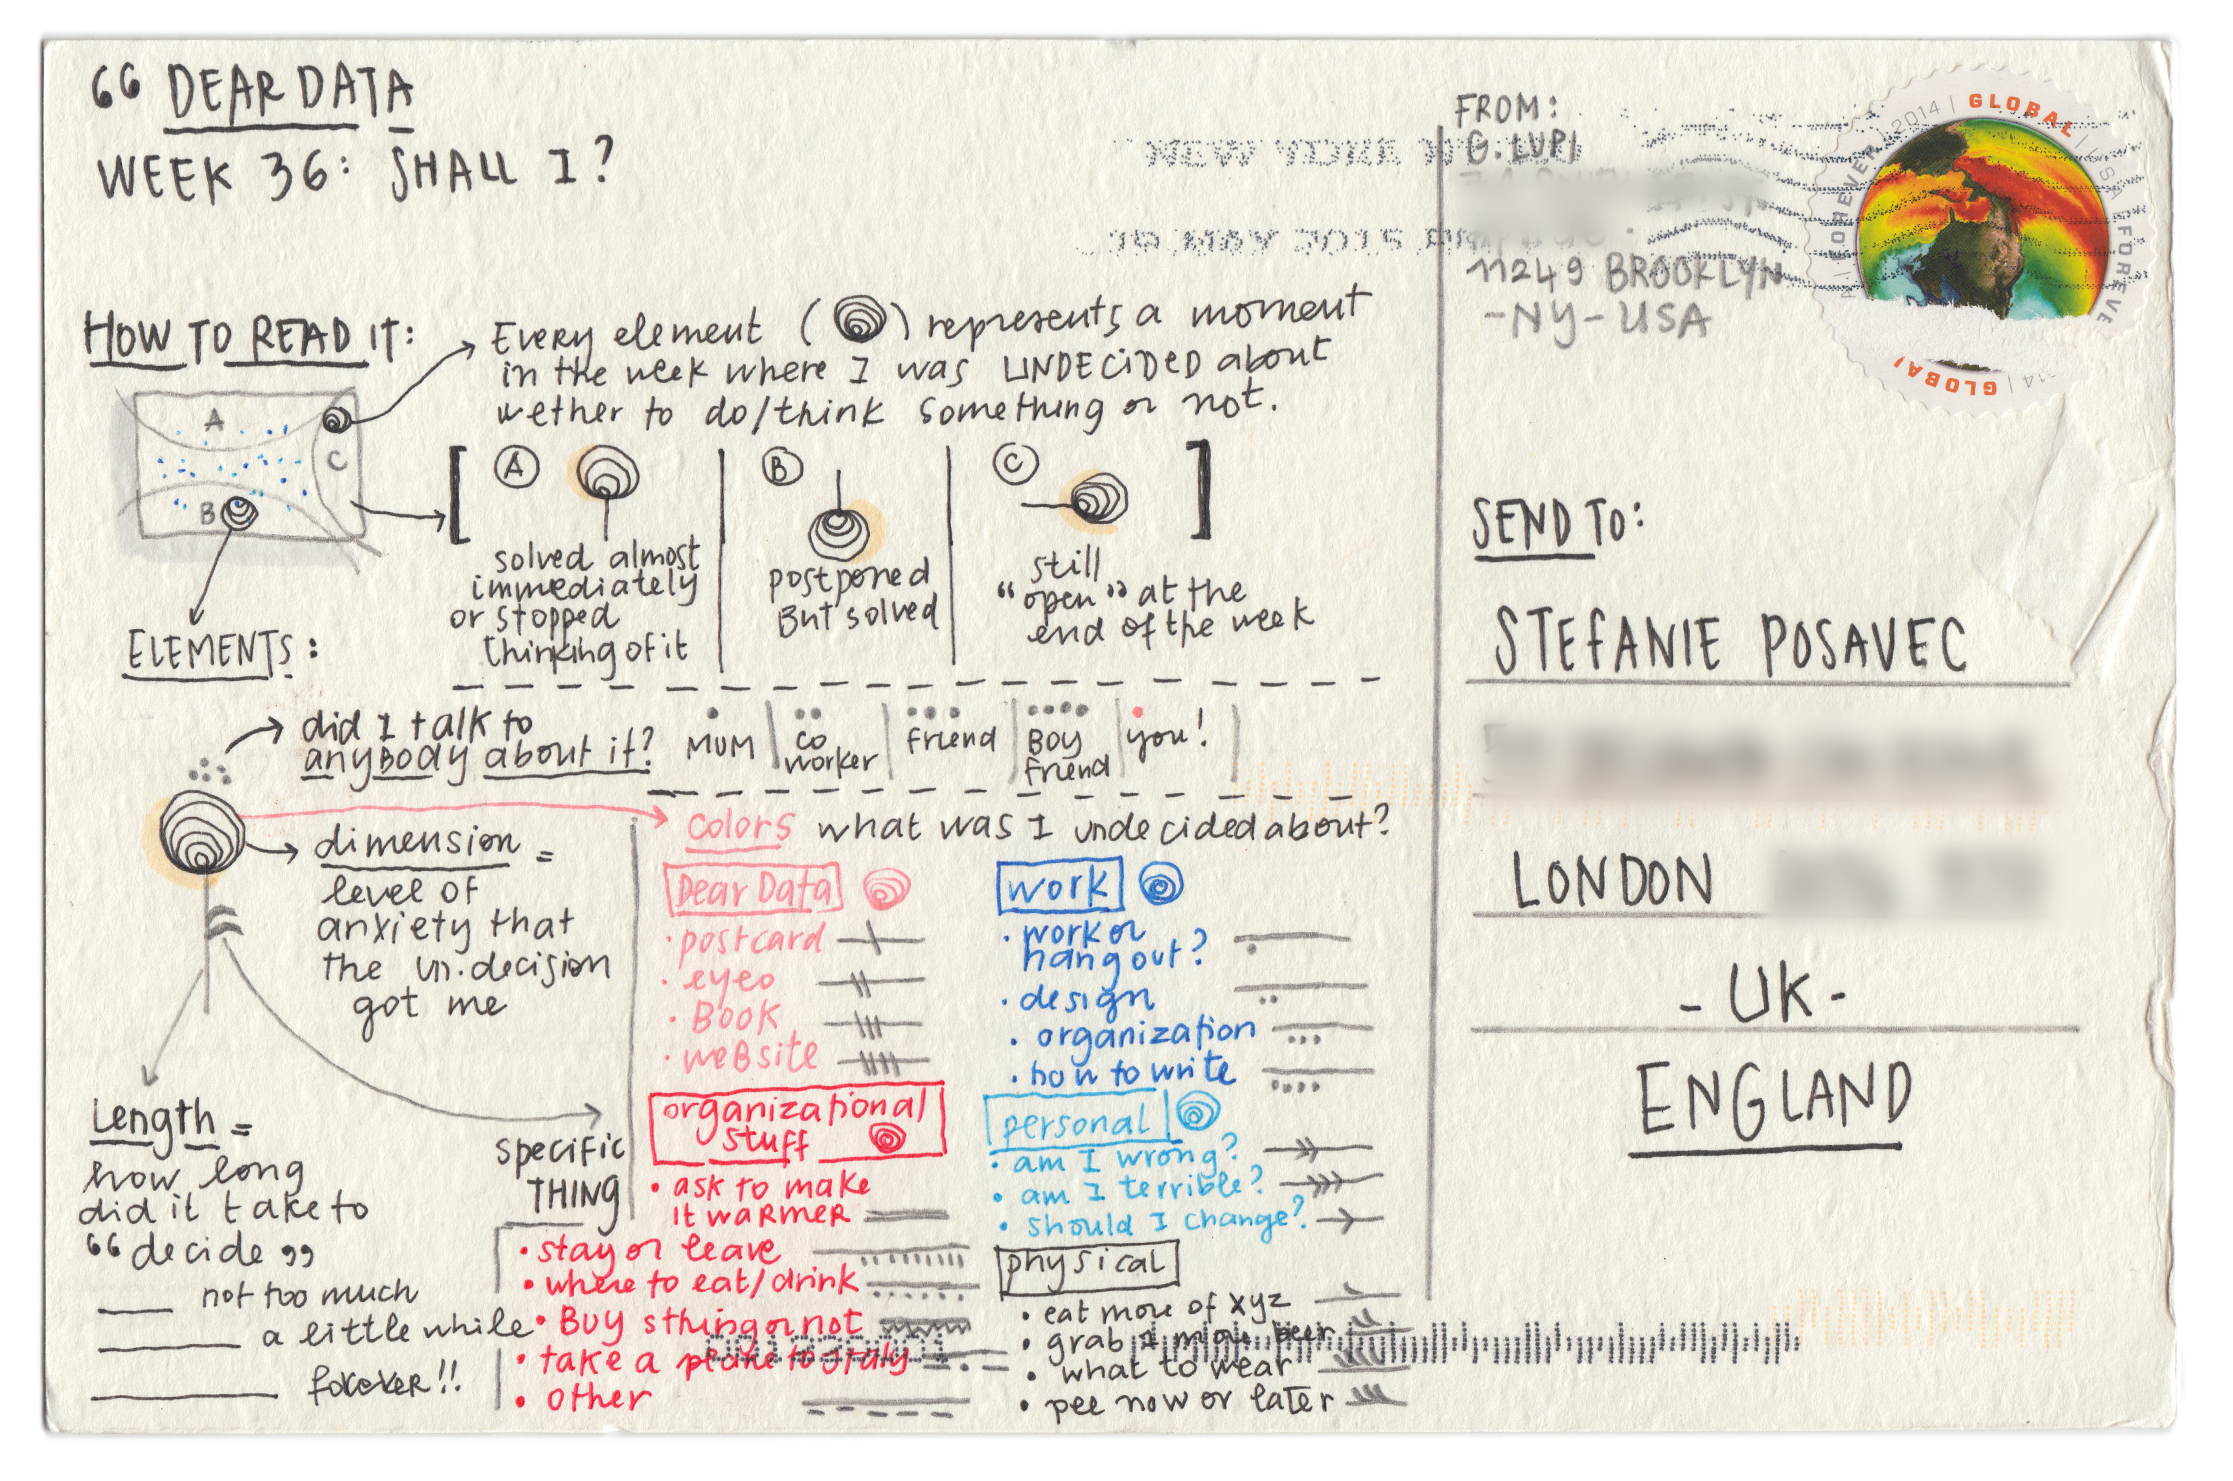 DEAR DATA
WEEK 36: SHALL I?
HOW TO READ IT:
Every element ( ) represents a moment
in the week where I was UNDECIDED about
wether to do/think something or not.
A
B
C
A
solved almost
immediately
or stopped
thinking of it
B
postponed
But solved
C
still
"open" at the
end of the week
ELEMENTS:
did I talk to
anybody about it?
MUM
co
worker
friend
Boy
friend
you!
dimension =
level of
anxiety that
the un.decision
got me
Length =
how long
did it take to
"decide"
not too much
a little while
forever!!
specific
THING
colors what was I undecided about?
Dear Data
• postcard
• eyeo
• Book
• website
organizational
stuff
• ask to make
it warmer
• stay or leave
• where to eat/drink
• Buy sthing or not
• take a plane to italy
• other
work
• work or
hang out?
• design
• organization
• how to write
personal
• am I wrong?
• am I terrible?
• should I change?
physical
• eat more of xyz
• grab 1 more beer
• what to wear
• pee now or later
FROM:
G. LUPI
11249 BROOKLYN
-NY-USA
NEW YORK
19 MAY 2015
GLOBAL
FOREVER
2014
USA
FOREVE
GLOBAL
SEND TO:
STEFANIE POSAVEC
LONDON
-UK-
ENGLAND